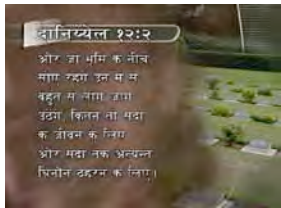 दानिय्येल १२:२
और जो भूमि के नीचे
सोए रहेंगे उन में से
बहुत से लोग जाग
उठेंगे, कितने तो सदा
के जीवन के लिए
और सदा तक अत्यन्त
घिनौने ठहरने के लिए।